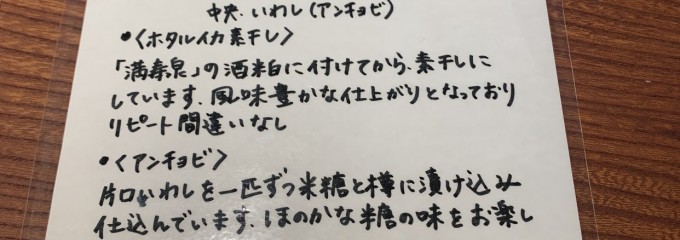 中央.いわし(アンチョビ)
•〈ホタルイカ素干し〉
「満寿泉」の酒粕に付けてから、素干しに
しています.風味豊かな仕上がりとなっており
リピート間違いなし
•〈アンチョビ〉
片口いわしを一匹ずつ米糖と樽に漬け込み
仕込んでいます.ほのかな糖の味をお楽し